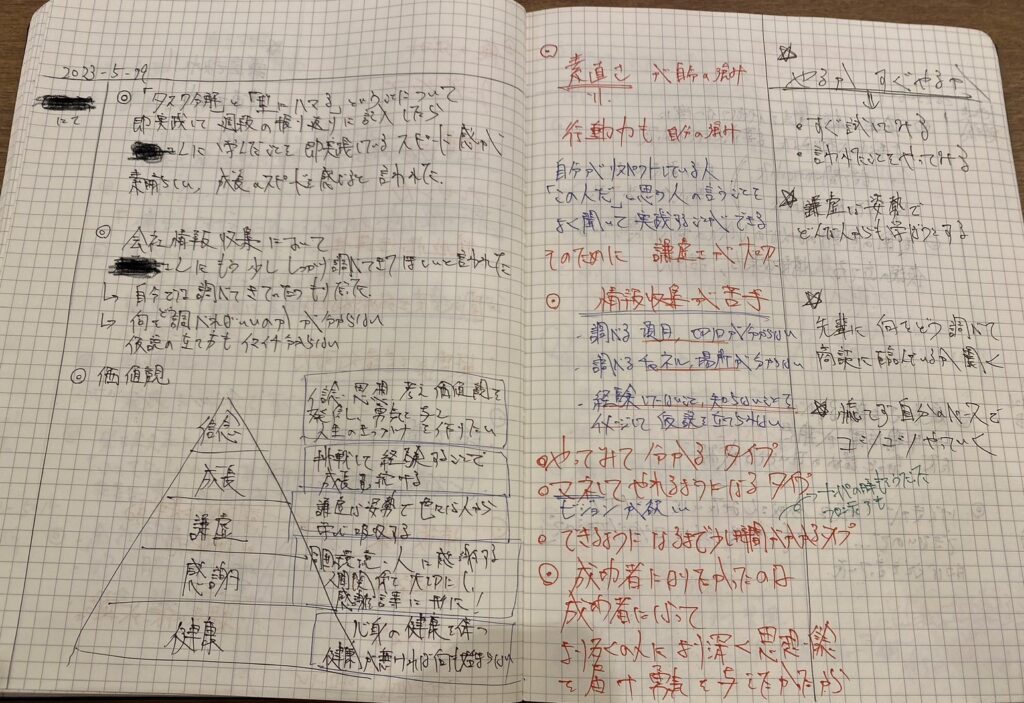 2023-5-29
にて
◎「タスク分解」と「型にハマる」ということについて
即実践して週報の振り返りに記入したら
さんに学んだことを即実践しているスピード感が
素晴らしい、成長のスピードを感じると言われた。
◎ 会社情報収集において
さんにもう少ししっかり調べてきてほしいと言われた
↳ 自分では調べてきていたつもりだった
↳ 何をどう調べればいいのかが分からない
仮説の立て方もイマイチ分からない
◎ 価値観
信念
信念・思想・考え価値観を
発信し、勇気を与え
人生のきっかけを作りたい
成長
挑戦して経験することで
成長し続ける
謙虚
謙虚な姿勢で色々な人から
学び吸収する
感謝
環境・人に感謝する
人間関係を大切にし、
感謝言葉に形に!
健康
心身の健康を保つ
健康が無ければ何も始まらない
◎ 素直さが自分の強み
行動力も自分の強み
自分がリスペクトしている人
「この人だ」と思う人の言うことを
よく聞いて実践することができる
そのために謙虚さが大切
◎ 情報収集が苦手
・調べる項目、切口が分からない
・調べるチャネル、場所が分からない
・経験してないこと、知らないことを
イメージして仮説を立てられない
◎やってみて分かるタイプ
◎マネしてやれるようになるタイプ
ビジョンが欲しい
◎できるようになるまで少し時間がかかるタイプ
◎ 成功者になりたかったのは
成功者になって
より多くの人により深く思想・信念
を届け勇気を与えたかったから
☆
やるか すぐやるか
・すぐ試してみる
・言われたことをやってみる
☆ 謙虚な姿勢で
どんな人からも学ぼうとする
☆
先輩に何をどう調べて
商談に臨んでいるか聞く
☆ 慌てず自分のペースで
コツコツやっていく